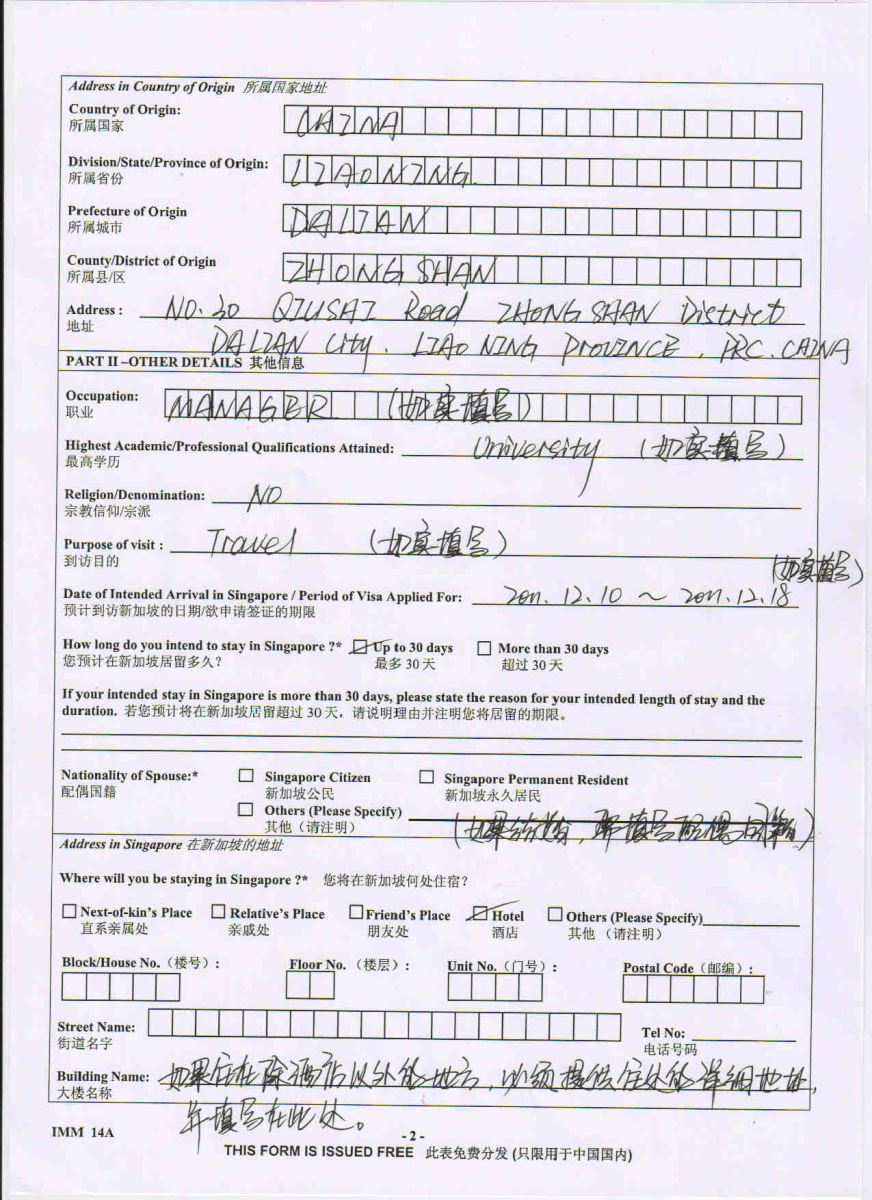 Address in Country of Origin 所属国家地址
Country of Origin: CHINA
所属国家
Division/State/Province of Origin: LIAONING
所属省份
Prefecture of Origin DALIAN
所属城市
County/District of Origin ZHONG SHAN
所属县/区
Address : NO.30 QIUSAI Road ZHONG SHAN District
地址 DALIAN City. LIAO NING PROVINCE. PRC. CHINA
PART II –OTHER DETAILS 其他信息
Occupation: MANAGER (如实填写)
职业
Highest Academic/Professional Qualifications Attained: University (如实填写)
最高学历
Religion/Denomination: NO
宗教信仰/宗派
Purpose of visit : Travel (如实填写)
到访目的 (如实填写)
Date of Intended Arrival in Singapore / Period of Visa Applied For: 2011.12.10 ~ 2011.12.18
预计到访新加坡的日期/欲申请签证的期限
How long do you intend to stay in Singapore ?* Up to 30 days More than 30 days
您预计在新加坡居留多久？ 最多 30 天 超过 30 天
If your intended stay in Singapore is more than 30 days, please state the reason for your intended length of stay and the
duration. 若您预计将在新加坡居留超过 30 天，请说明理由并注明您将居留的期限。
Nationality of Spouse:* Singapore Citizen Singapore Permanent Resident
配偶国籍 新加坡公民 新加坡永久居民
Others (Please Specify)
其他（请注明） (如果结婚，要填写配偶国籍)
Address in Singapore 在新加坡的地址
Where will you be staying in Singapore ?* 您将在新加坡何处住宿？
Next-of-kin's Place Relative's Place Friend's Place Hotel Others (Please Specify)
直系亲属处 亲戚处 朋友处 酒店 其他 （请注明）
Block/House No.（楼号）: Floor No.（楼层）: Unit No.（门号）: Postal Code（邮编）:
Street Name: Tel No:
街道名字 电话号码
Building Name: 如果住在除酒店以外的地方，必须提供住处的详细地址，
大楼名称 并填写在此处。
IMM 14A - 2 -
THIS FORM IS ISSUED FREE 此表免费分发 (只限用于中国国内)